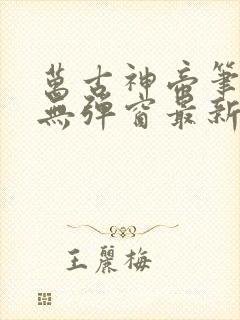 萬古神帝筆
無彈窗最新
王麗梅